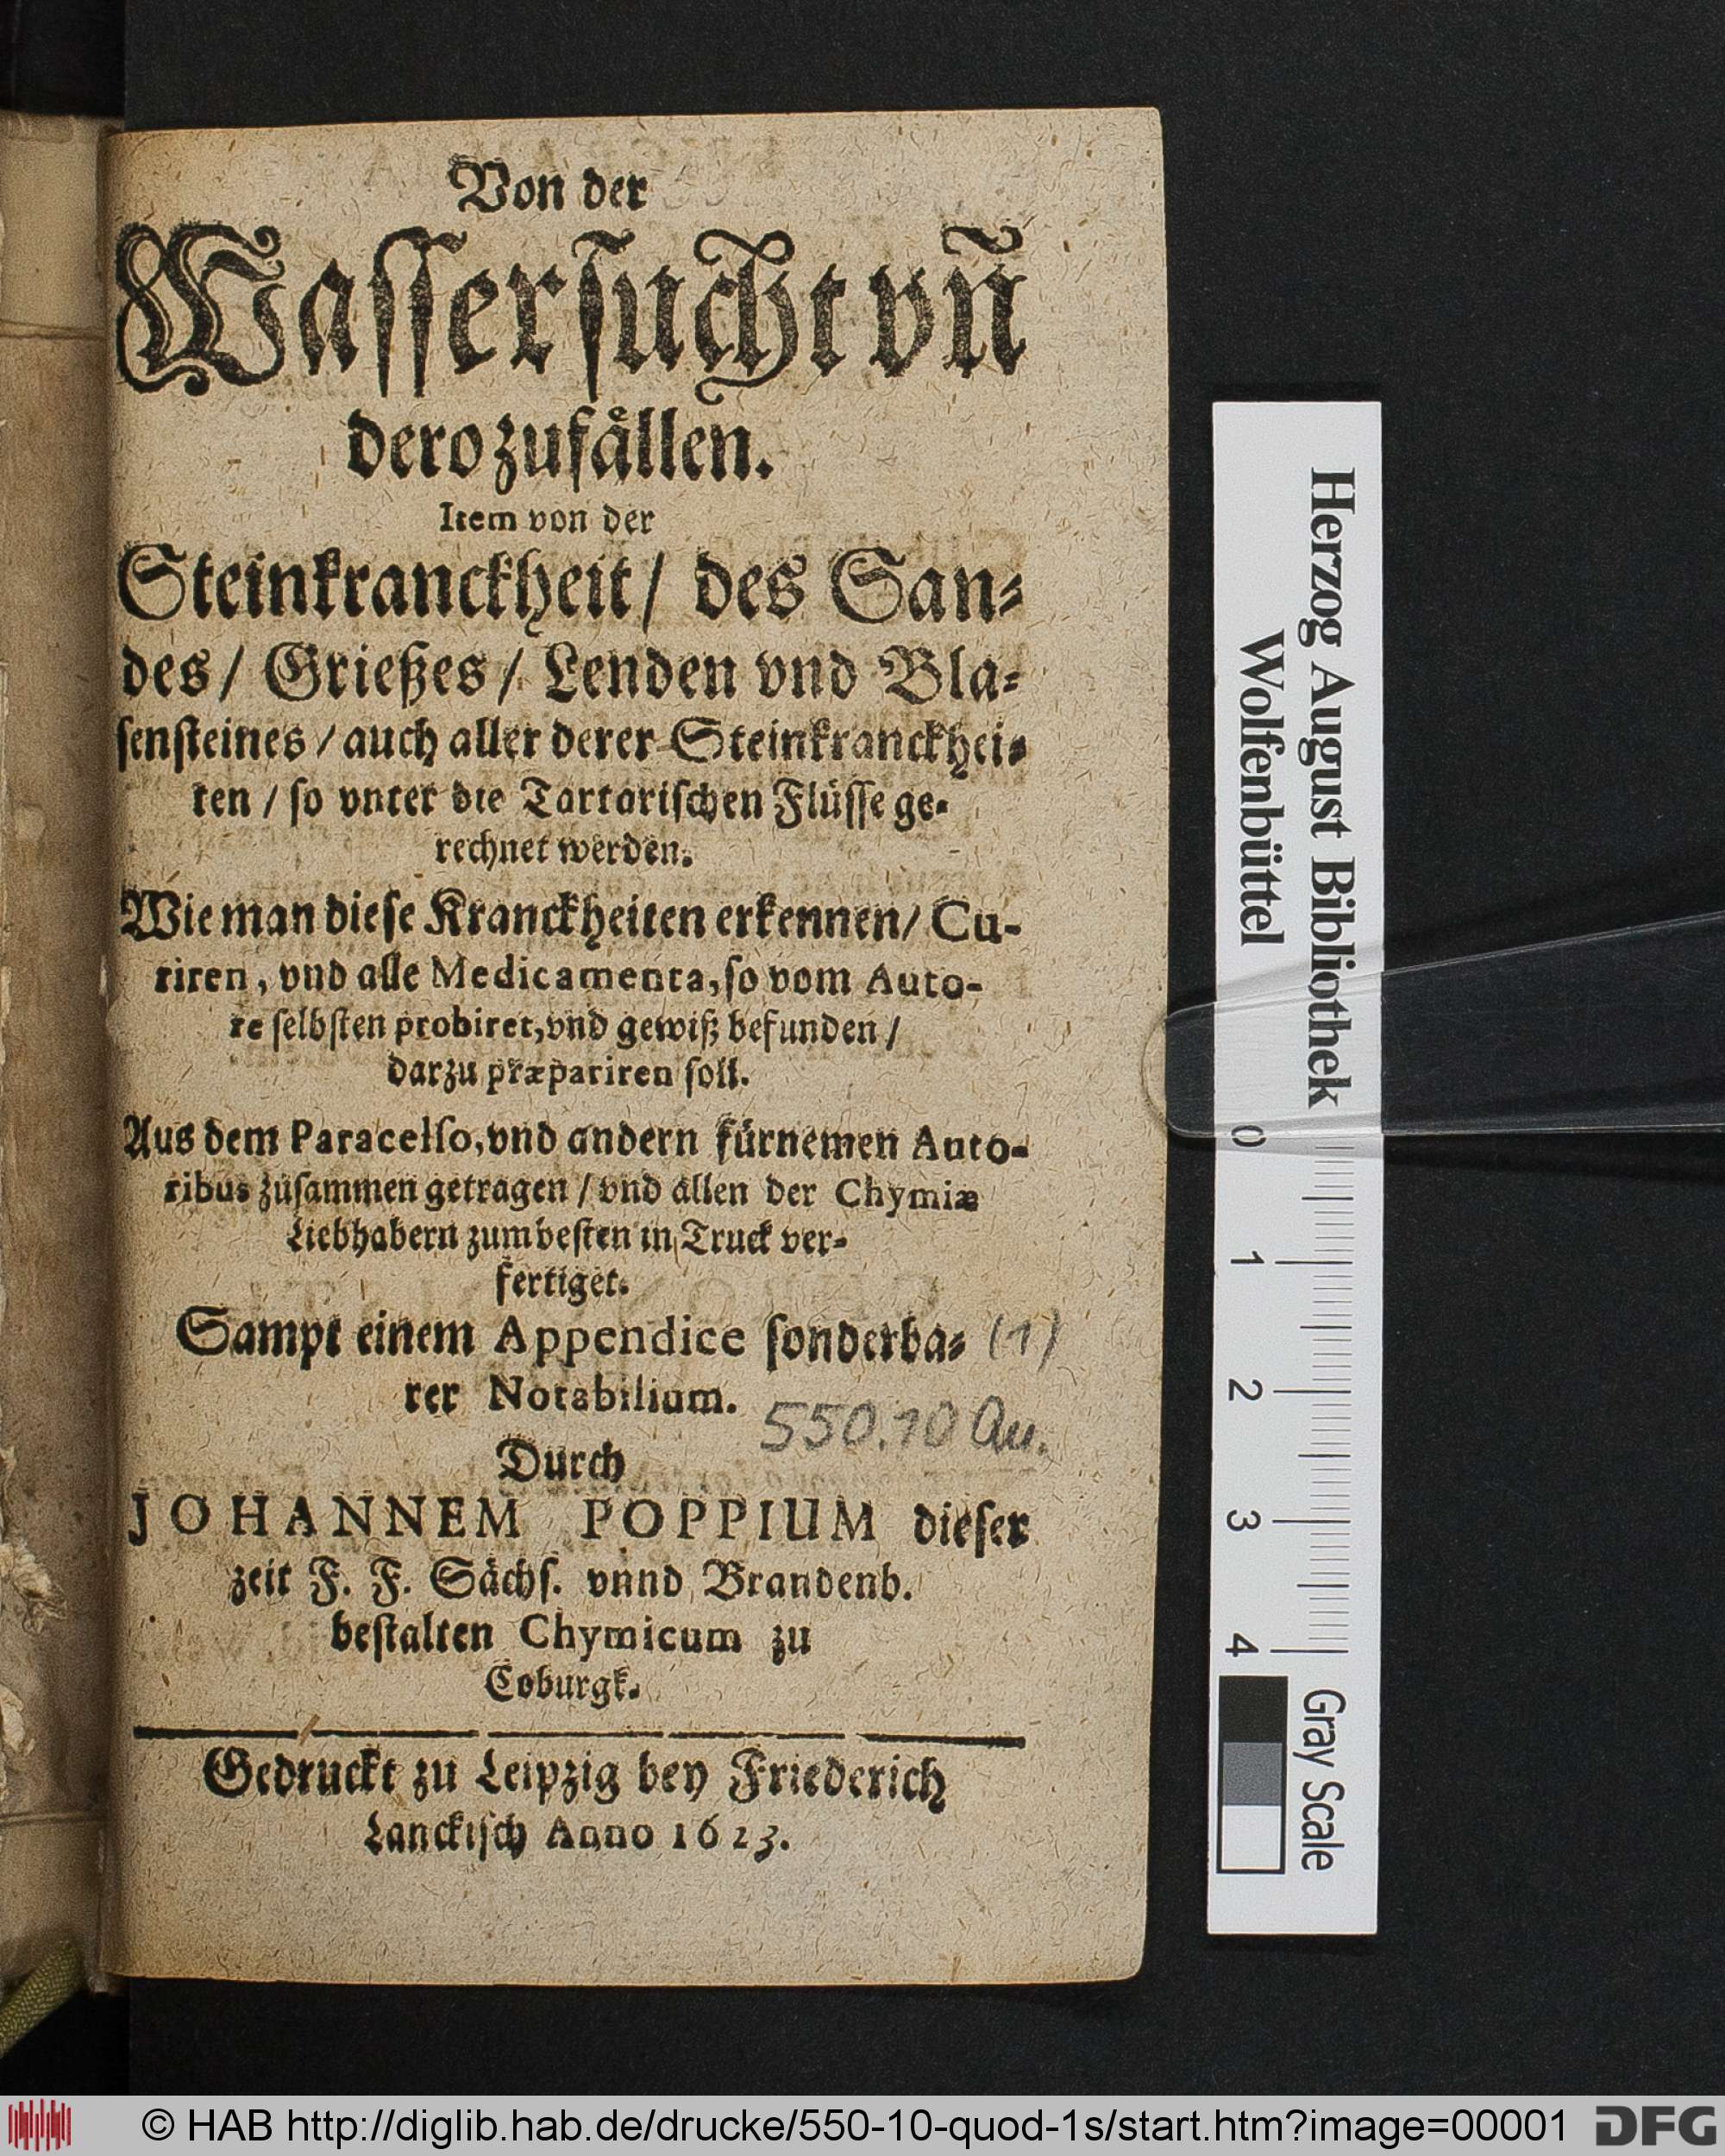 Von der
Wasserſucht vñ
dero zufaͤllen.
Item von der
Steinkranckheit / des San-
des / Grießes / Lenden vnd Bla-
ſenſteines / auch aller derer Steinkranckhei-
ten / ſo vnter die Tartariſchen Fluͤſſe ge-
rechnet werden.
Wie man dieſe Kranckheiten erkennen / Cu-
riren, vnd alle Medicamenta, ſo vom Auto-
re ſelbſten probiret, vnd gewiß befunden /
darzu præpariren ſoll.
Aus dem Paracelſo, vnd andern fuͤrnemen Auto-
ribus zuſammen getragen / vnd allen der Chymiæ
Liebhabern zum beſten in Truck ver-
fertiget.
Sampt einem Appendice ſonderba- (1)
rer Notabilium.
550.10 Qu.
Durch
JOHANNEM POPPIUM dieſer
zeit F. F. Saͤchſ. vnnd Brandenb.
beſtalten Chymicum zu
Coburgk.
Gedruckt zu Leipzig bey Friederich
Lanckiſch Anno 1623.
Herzog August Bibliothek
Wolfenbüttel
0 1 2 3 4
Gray Scale
© HAB http://diglib.hab.de/drucke/550-10-quod-1s/start.htm?image=00001
DFG